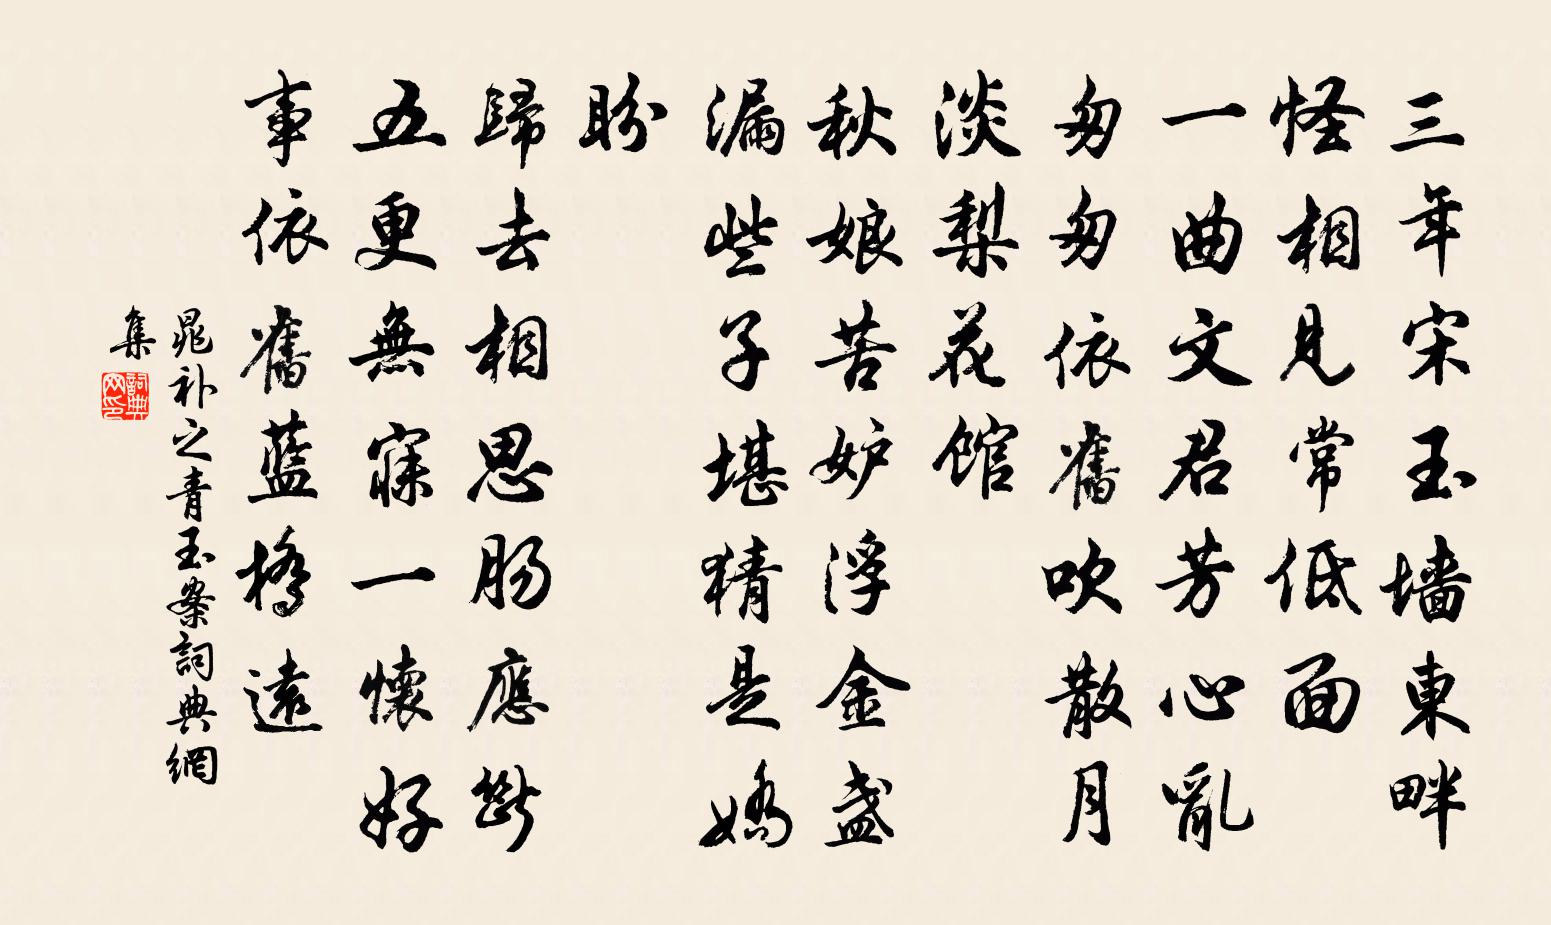 三年宋玉墙東畔
怪相見常低面
一曲文君芳心亂
匆匆依舊吹散月
淡梨花館
秋娘苦妒浮金盞
漏些子堪猜是嬌
盼
歸去相思腸應斷
五更無寐一懷好
事依舊藍橋遠
晁补之青玉案詞典網
集
詞典网印